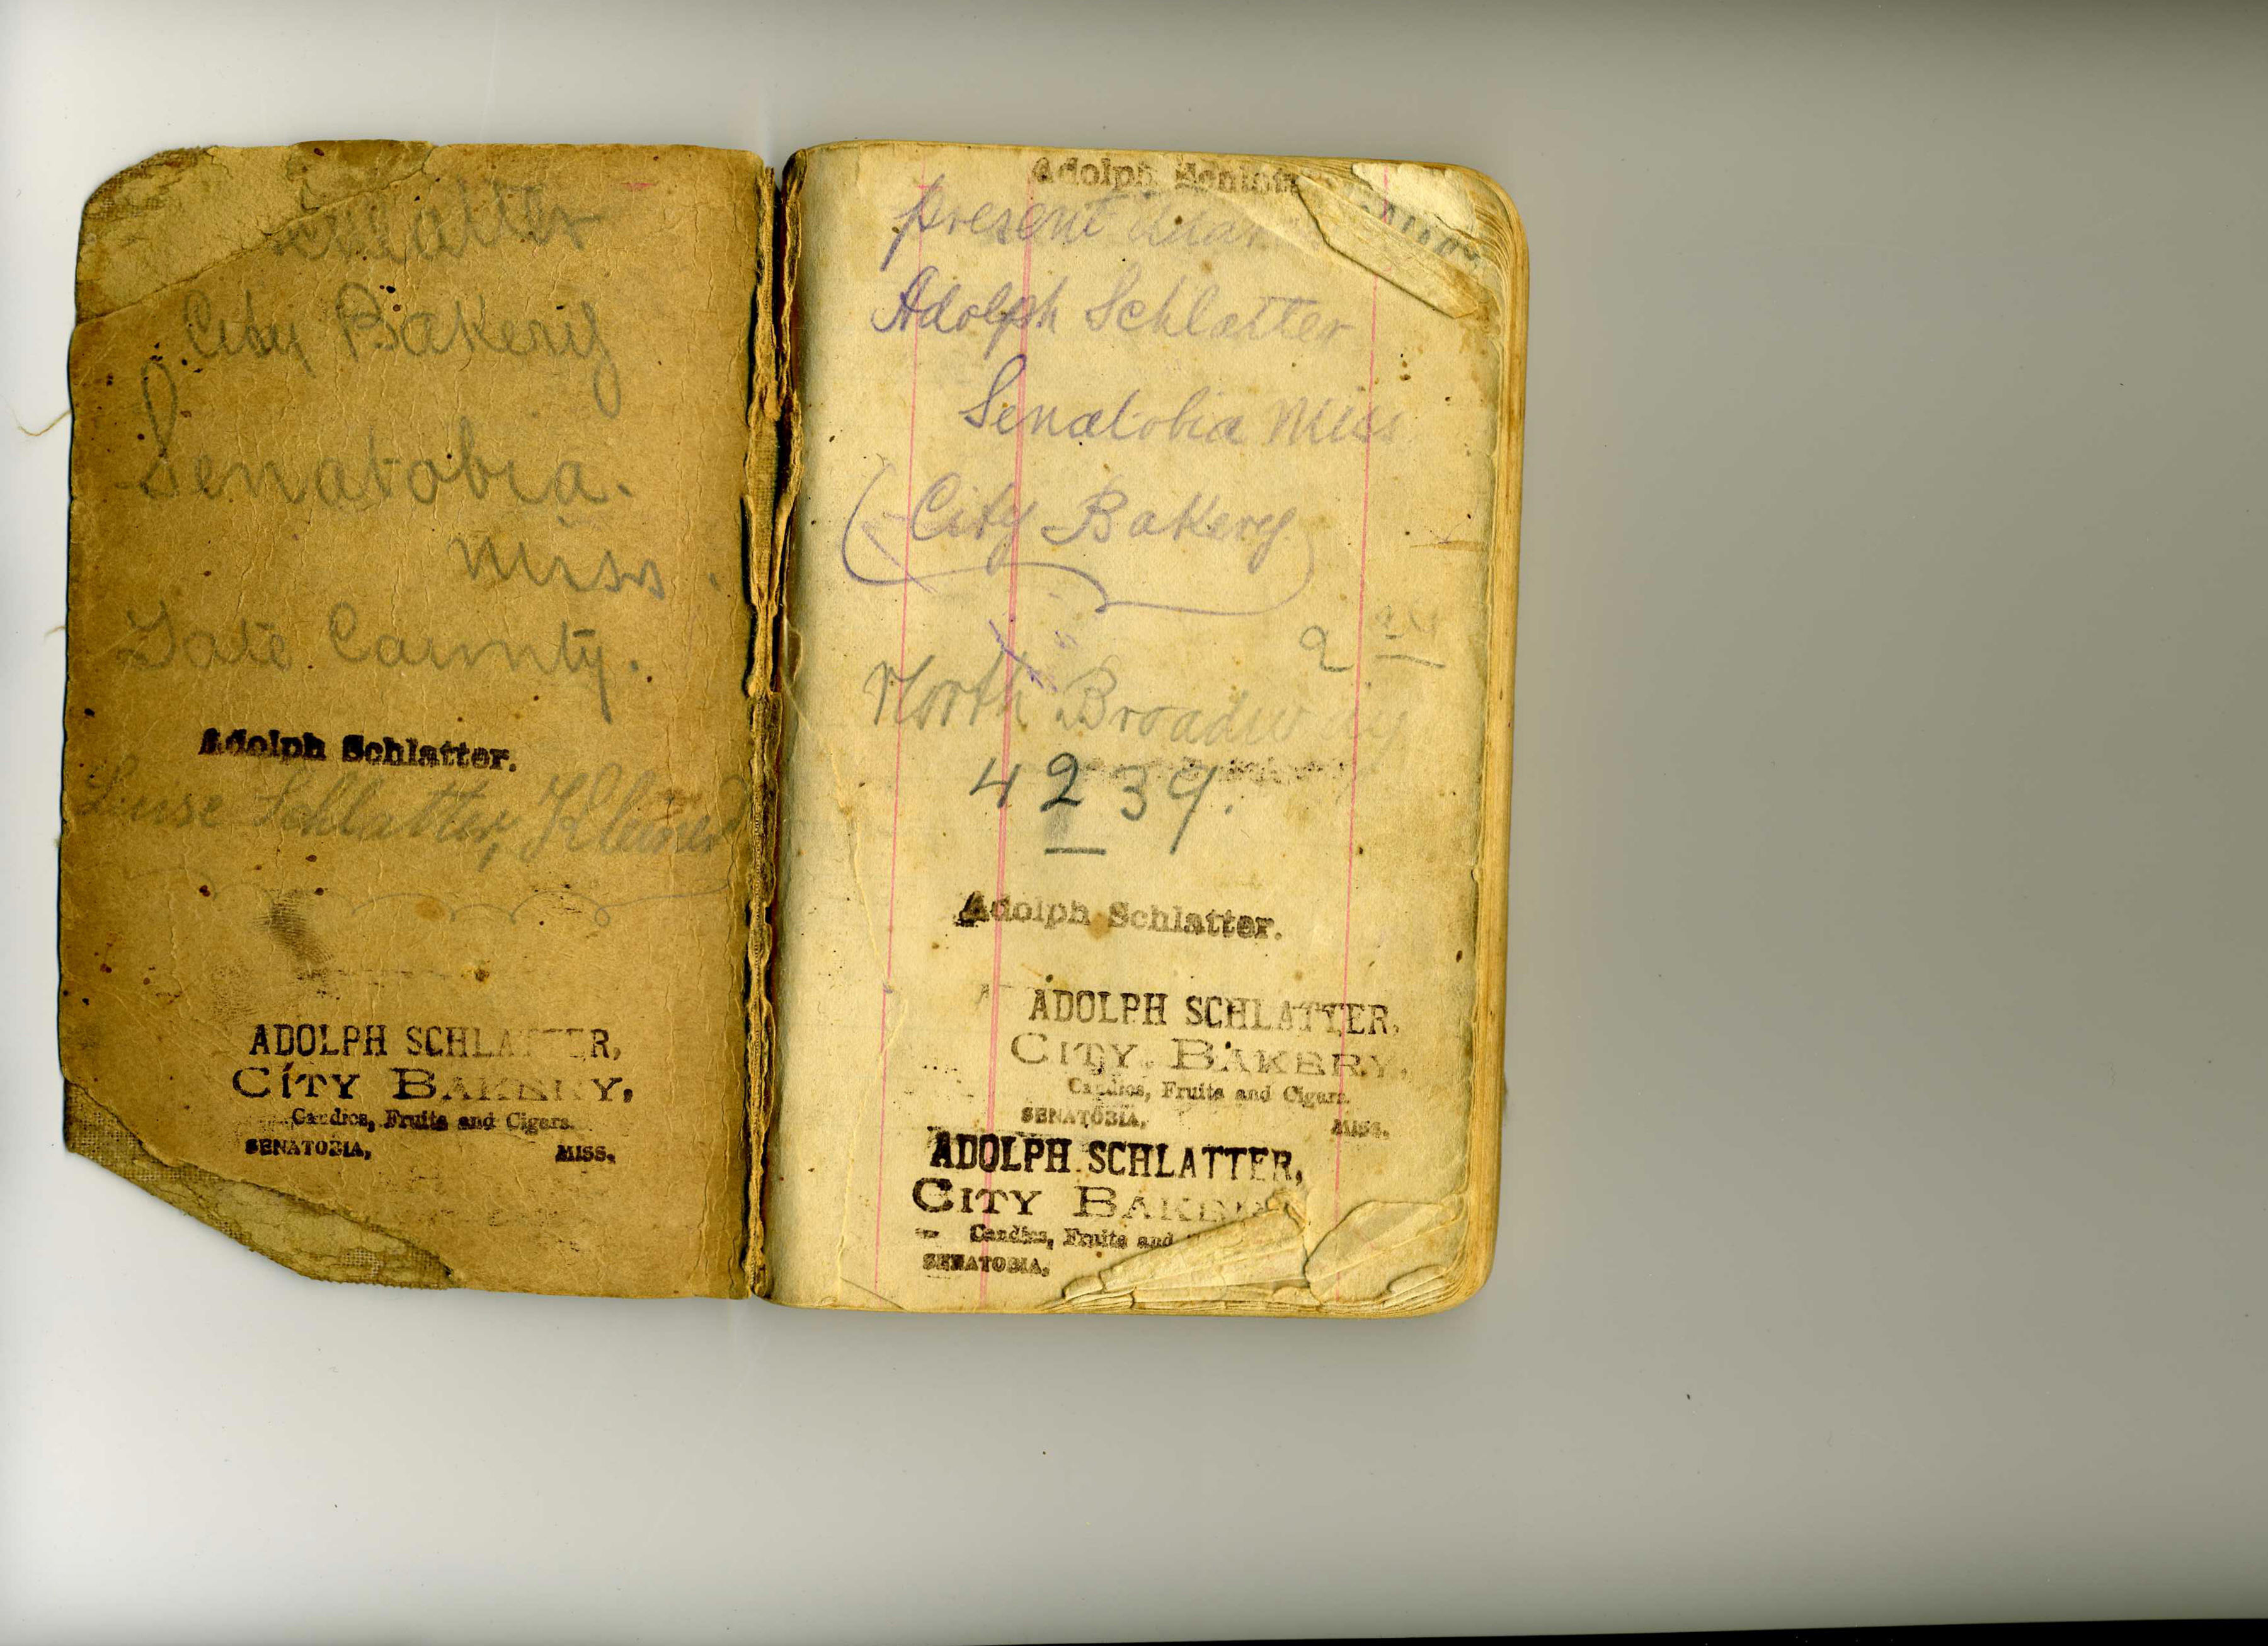 Schlatter
City Bakery
Senatobia.
Miss.
Tate County.
Adolph Schlatter.
Luise Schlatter,
ADOLPH SCHLATTER,
CITY BAKERY,
Candies, Fruits and Cigars.
SENATOBIA, MISS.
Adolph Schlatter
present
Adolph Schlatter
Senatobia Miss
(City Bakery)
2
North Broadway
4239.
Adolph Schlatter.
ADOLPH SCHLATTER,
CITY BAKERY,
Candies, Fruits and Cigars.
SENATOBIA, MISS.
ADOLPH SCHLATTER,
CITY BAKERY
Candies, Fruits and
SENATOBIA,